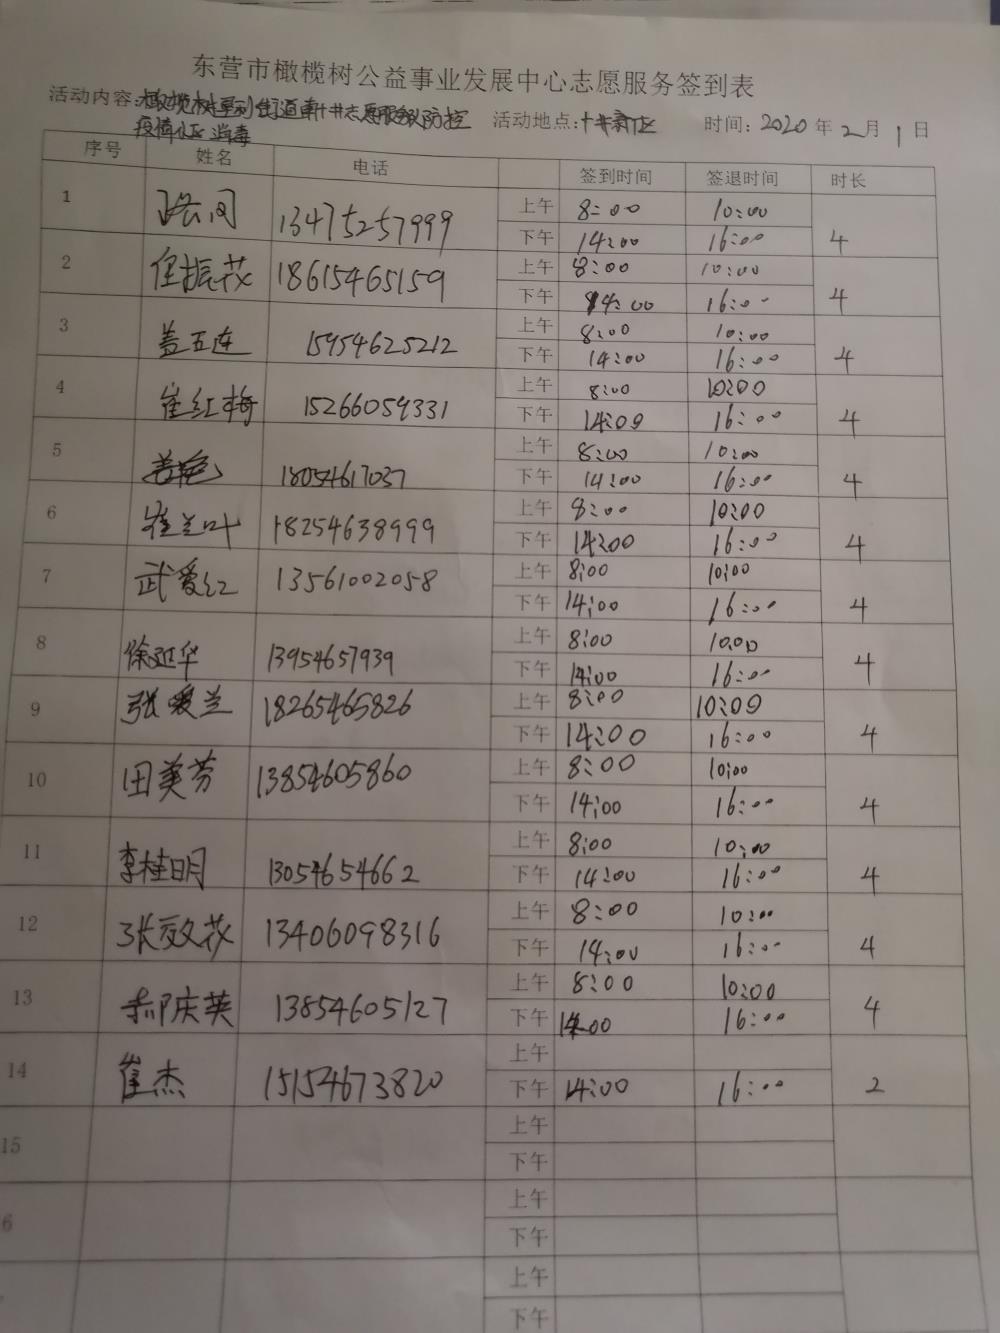 东营市橄榄树公益事业发展中心志愿服务签到表
活动内容:橄榄树 街道 志愿服务队防控 活动地点: 时间: 2020 年 2 月 1 日
疫情 消毒
序号 姓名 电话 签到时间 签退时间 时长
1 13475257999 上午 8:00 10:00
下午 14:00 16:00 4
2 任振茂 18615465159 上午 8:00 10:00
下午 14:00 16:00 4
3 盖五连 15954625212 上午 8:00 10:00
下午 14:00 16:00 4
4 崔红梅 15266054331 上午 8:00 10:00
下午 14:00 16:00 4
5 18054617037 上午 8:00 10:00
下午 14:00 16:00 4
6 崔兰叶 18254638999 上午 8:00 10:00
下午 14:00 16:00 4
7 武爱红 13561002058 上午 8:00 10:00
下午 14:00 16:00 4
8 徐延华 13954657939 上午 8:00 10:00
下午 14:00 16:00 4
9 张爱兰 18265465826 上午 8:00 10:00
下午 14:00 16:00 4
10 田美芳 13854605860 上午 8:00 10:00
下午 14:00 16:00 4
11 李桂明 13054654662 上午 8:00 10:00
下午 14:00 16:00 4
12 张效茂 13406098316 上午 8:00 10:00
下午 14:00 16:00 4
13 郝庆英 13854605127 上午 8:00 10:00
下午 14:00 16:00 4
14 崔杰 15154673820 上午
下午 14:00 16:00 2
15 上午
下午
6 上午
下午
上午
下午